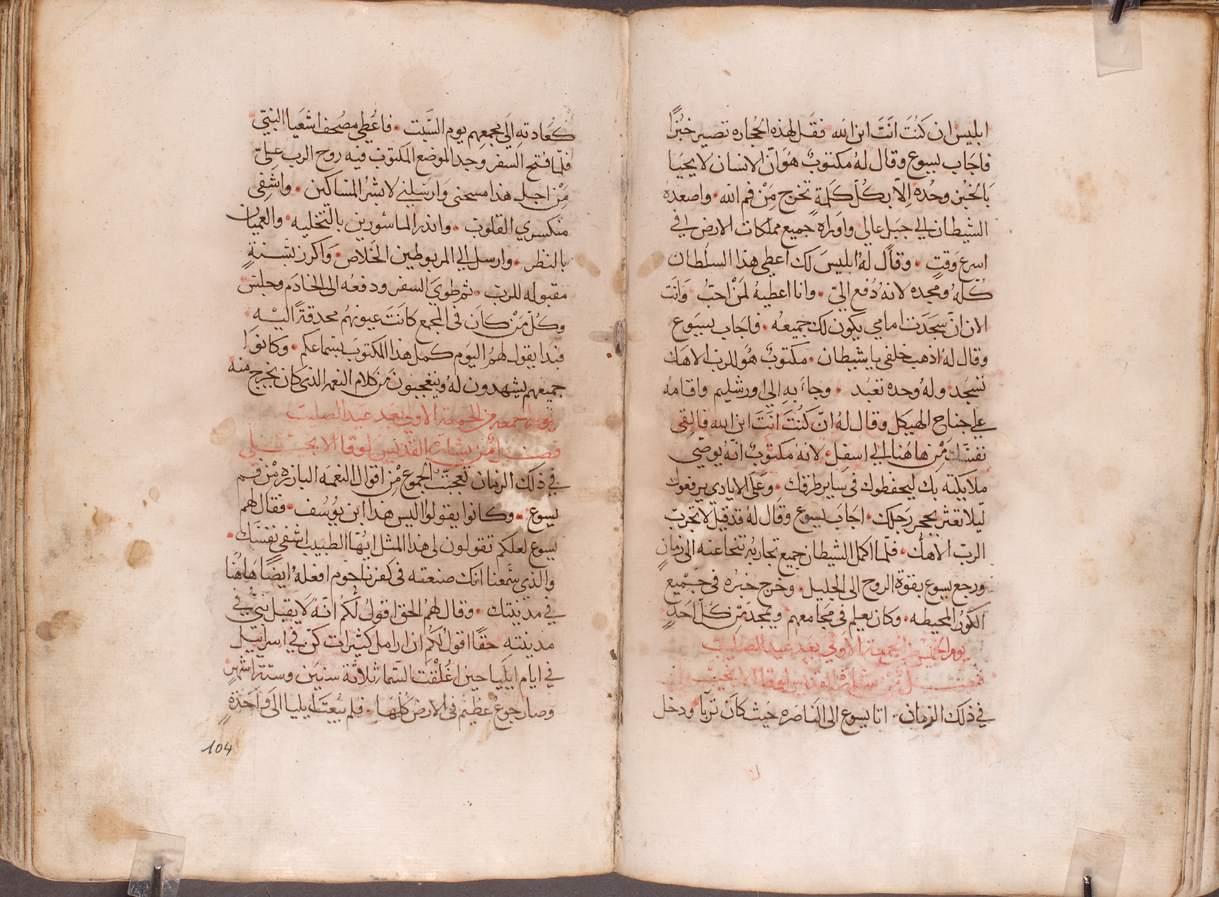 ابليس ان كنت انت ابن الله فقل لهذه الحجاره تصير خبزًا
فاجاب يسوع وقال له مكتوبٌ هو ان الانسان لا يحيا
بالخبز وحده الا بكل كلمة تخرج من فم الله • واصعده
الشيطان الى جبل عالي واوراه جميع مملكات الارض في
اسرع وقتٍ • وقال له ابليس لك اعطي هذا السلطان
كله ومجده لانه دُفع اليّ • وانا اعطيه لمن احبّ • وانت
الان ان سجدت امامي يكون لك جميعه • فاجاب يسوع
وقال له اذهب خلفي يا شيطان • مكتوبٌ هو للرب الاهك
تسجد • وله وحده تعبد • وجاء به الى اورشليم واقامه
على جناح الهيكل وقال له ان كنت انت ابن الله فالقي
نفسك من هاهنا الى اسفل • لانه مكتوبٌ انه يوصّي
ملايكته بك ليحفظوك في ساير طرقك • وعلى الايادي يرفعوك
ليلا تعثر بحجر رجلك • اجاب يسوع وقال له قد قيل لا تجرب
الرب الاهك • فلما اكمل الشيطان جميع تجاربه تنحا عنه الى زمانٍ
ورجع يسوع بقوة الروح الى الجليل • وخرج خبره في جميع
الكور المحيطه • وكان يعلم في مجامعهم ويمجد من كل احدٍ
يوم الخميس من الجمعة الاولى بعد عيد الصليب
فصل من بشارة القديس لوقا الانجيلي
في ذلك الزمان • اتا يسوع الى الناصره حيث كان تربّا • ودخل
كعادته الى مجمعهم يوم السَّبت • فاعُطي مصحف اشعيا النبي
فلما فتح السفر وجد الموضع المكتوب فيه روح الرب عليّ
من اجل هذا مسحني وارسلني لابشر المساكين • واشفي
منكسري القلوب • وانذر الماسورين بالتخليه • والعميان
بالنظر • وارسل الى المربوطين الخلاص • واكرز بسنةٍ
مقبوله للرب • ثم طوى السفر ودفعه الى الخادم وجلس
وكل من كان في المجمع كانت عيونهم محدقةً اليه •
فبدا يقول لهم اليوم كمل هذا المكتوب بسماعكم • وكانوا
جميعهم يشهدون له ويتعجبون من كلام النعمه الذي كان يخرج منه
يوم الجمعه من الجمعة الاولى بعد عيد الصليب
فصل من بشارة القديس لوقا الانجيلي
في ذلك الزمان تعجبت الجموع من اقوال النعمه البارزه من فم
يسوع • وكانوا يقولوا اليس هذا ابن يوسف • فقال لهم
يسوع لعلكم تقولون لي هذا المثل ايها الطبيب اشفي نفسك •
والذي سمعنا انك صنعته في كفرناحوم افعله ايضًا هاهنا
في مدينتك • وقال لهم الحق اقول لكم انه لا يقبل نبيٌّ في
مدينته حقًا اقول لكم ان ارامل كثيرات كن في اسراييل
في ايام ايليا حين اغلقت السما ثلاثة سنين وستة اشهرٍ
وصار جوعٌ عظيم في الارض كلها • فلم يبعث ايليا الى واحدة
104